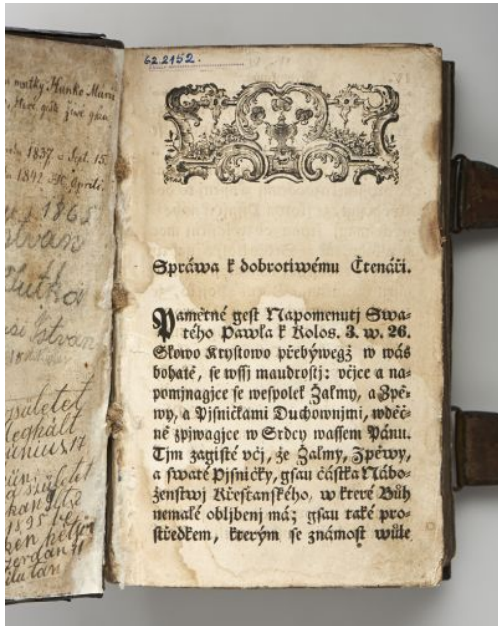 matky Hunko Mariu
1837 Sept. 15.
1842
1865
István
István
született
meghalt
Junius 17
született
1895 be
62.2152.
Spráwa k dobrotiwému Čtenáři.
Pamětné gest Napomenutj Swa-
tého Pawla k Kolos. 3. w. 26.
Slowo Krystowo přebýwegž w wás
bohatě, se wssj maudrostj: včjce a na-
pomjnagjce se wespolek Žalmy, a Zpě-
wy, a Pjsničkami Duchownjmi, wděč-
ně zpjwagjce w Srdcy wassem Pánu.
Tjm zagisté včj, že Žalmy, Zpěwy,
a swaté Pjsničky, gsau částka Nábo-
ženstwj Křesťanského, w které Bůh
nemalé obljbenj má; gsau také pro-
středkem, kterým se známost wůle